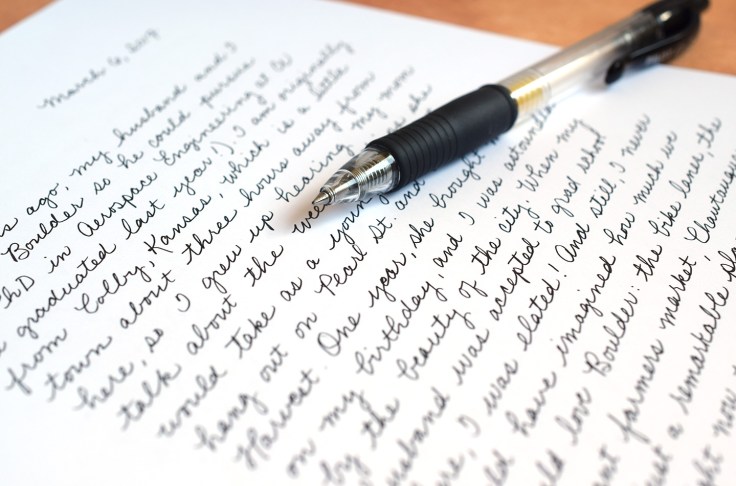 March 9,
s ago, my husband and I
Boulder so he could pursue
PhD in Aerospace Engineering at
graduated last year!) I am originally
from Colby, Kansas, which is a little
town about three hours away from
here, so I grew up hearing my mom
talk about the
would take as a young
hang out on Pearl St. and
Harvest. One year, she brought
on my birthday and I was astounded
by the beauty of the city. When my
usband was accepted to grad school
re, I was elated! And still, I never
ld have imagined how much we
ld love Boulder: the bike lanes, the
nt farmers market, Chautauqua
ust a remarkable pla
ght now